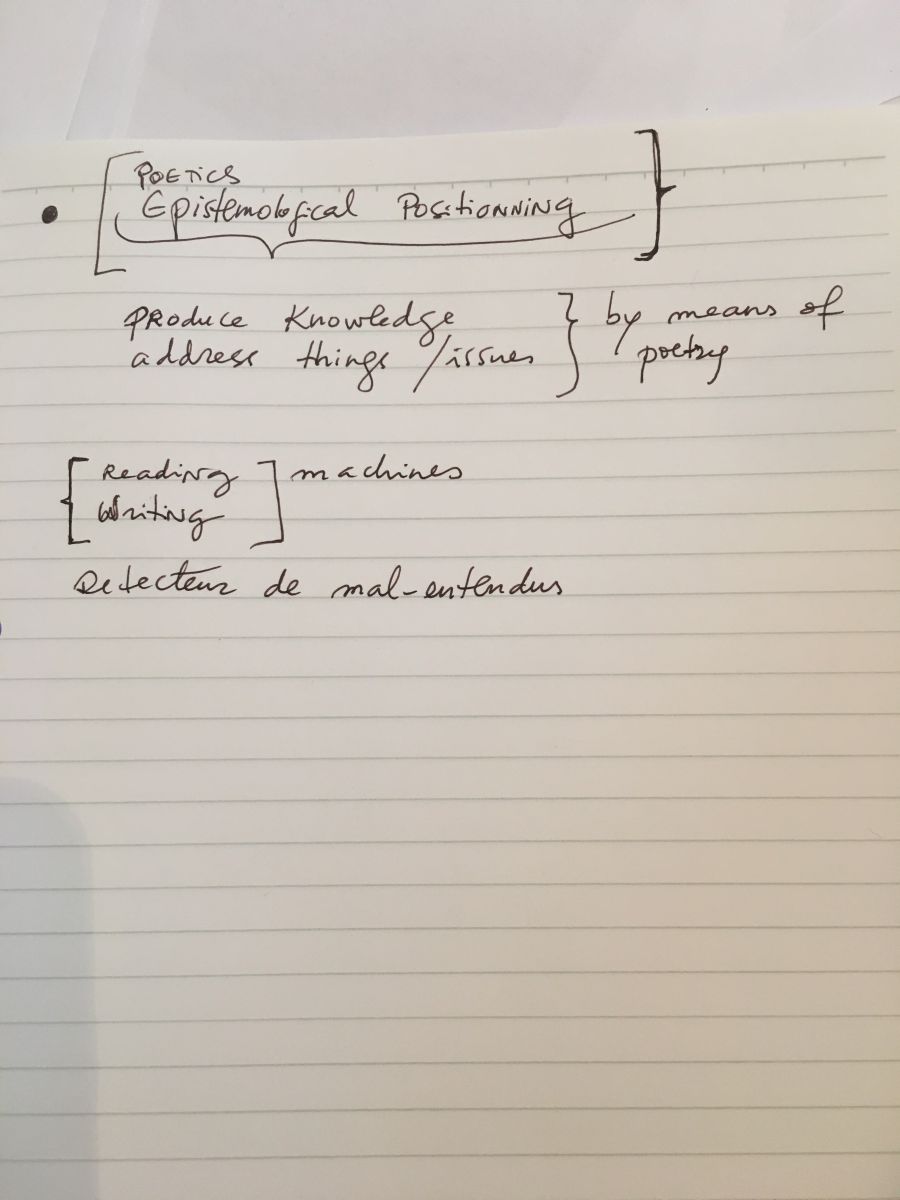 POETICS
• Epistemological Positionning
PRODUCE Knowledge
address things / issues
by means of
poetry
Reading
Writing
machines
Detecteur de mal-entendus